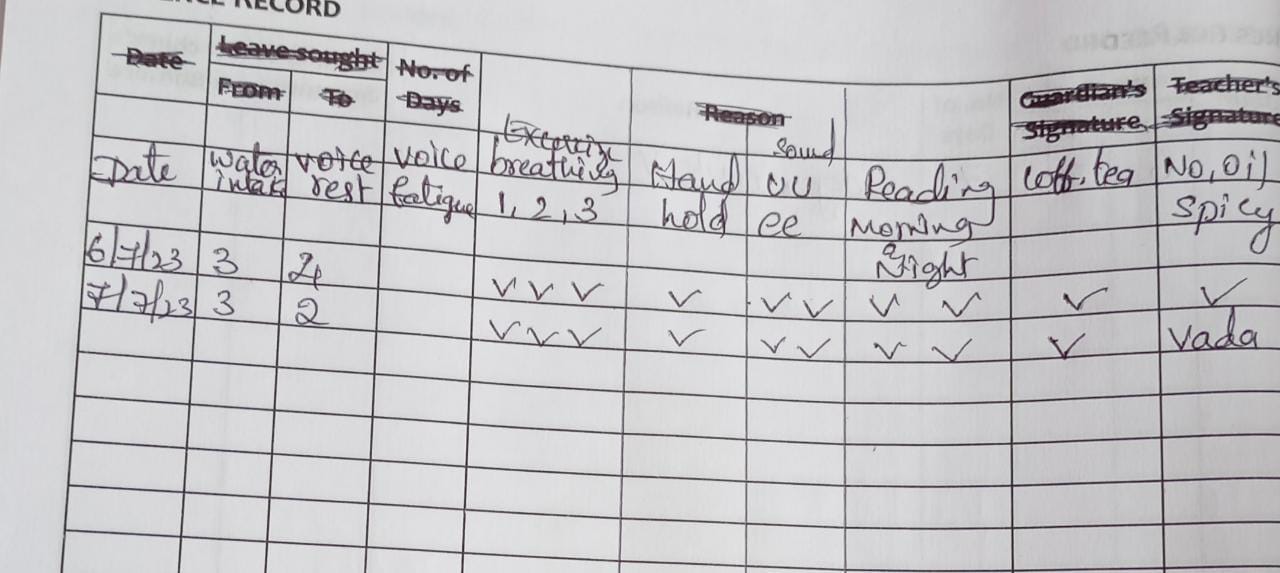 RECORD
Date Leave sought No. of Reason Guardian's Teacher's
From To Days Signature Signature
Exercise Sound
Date water voice voice breathing Hand uu Reading Coff, tea No, oil
intake rest fatigue 1, 2, 3 hold ee Morning Spicy
Night
6/7/23 3
✓ ✓ ✓ ✓ ✓ ✓ ✓ ✓ ✓ ✓
7/7/23 3 2
✓ ✓ ✓ ✓ ✓ ✓ ✓ ✓ ✓ vada